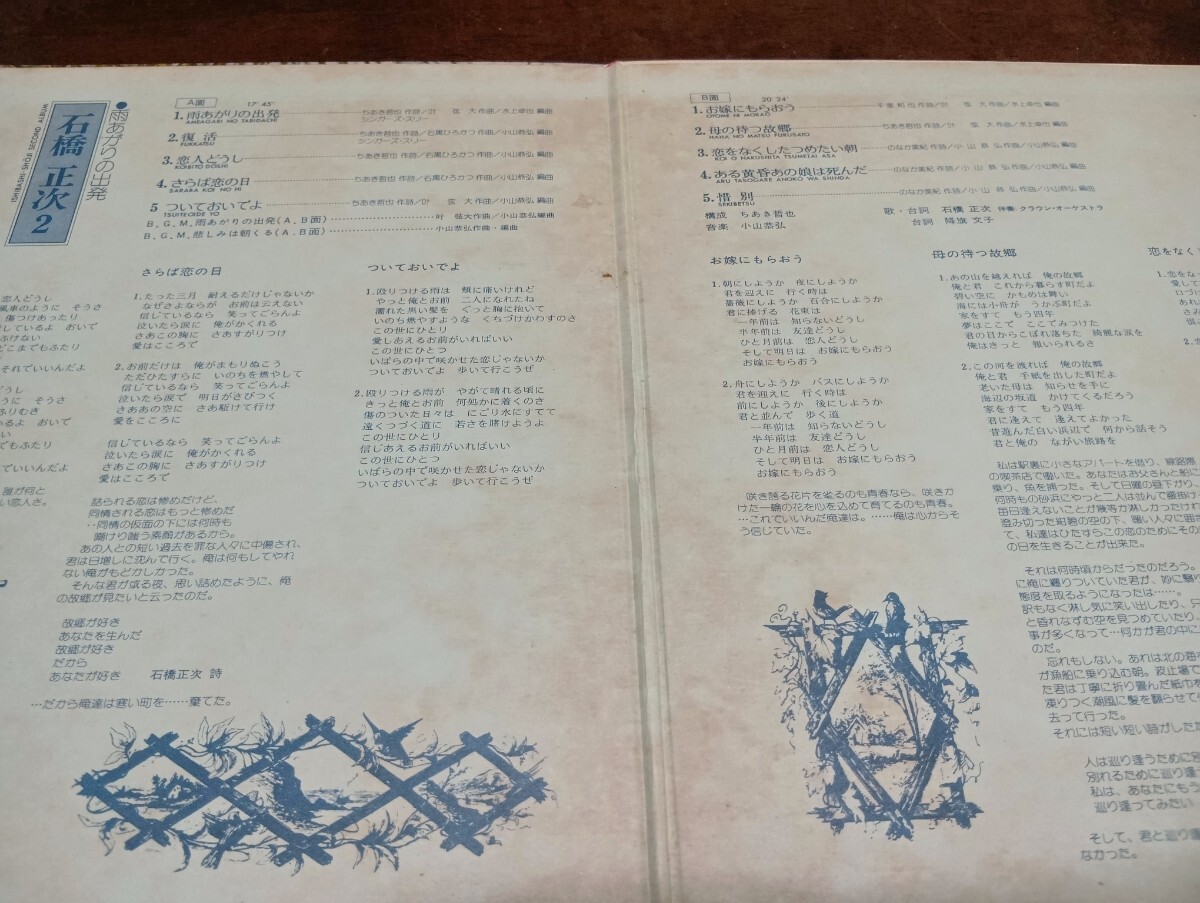 ●雨あがりの出発
石橋 正次 2
ISHIBASHI-SHOJI SECOND ALBUM
A面 17'45"
1.雨あがりの出発 ちあき哲也 作詩/叶 弦 大 作曲/水上卓也 編曲
AMEAGARI NO TABIDACHI シンガーズ・スリー
2.復 活 ちあき哲也 作詩/右黒ひろかつ 作曲/小山恭弘 編曲
FUKKATSU シンガーズ・スリー
3.恋人どうし ちあき哲也 作詩/右黒ひろかつ 作曲/小山恭弘 編曲
KOIBITO DOSHI
4.さらば恋の日 ちあき哲也 作詩/右黒ひろかつ 作曲/小山恭弘 編曲
SARABA KOI NO HI
5 ついておいでよ ちあき哲也 作詩/叶 弦 大 作曲/小山恭弘 編曲
TSUITEOIDE YO
B.G.M.雨あがりの出発(A.B面) 叶 弦大作曲/小山恭弘編曲
B.G.M.悲しみは朝くる(A.B面) 小山恭弘作曲・編曲
恋人どうし
風車のように そうさ
傷つけあったり
しているよ おいで
ふけない
どこまでもふたり
それでいいんだよ
どうし
うに そうさ
ふりむき
いるよ おいで
い
でもふたり
でいいんだよ
誰が何と
い恋人さ。
さらば恋の日
1.たった三月 耐えるだけじゃないか
なぜさよならが お前は云えない
信じているなら 笑ってごらんよ
泣いたら涙に 俺がかくれる
さあこの胸に さあすがりつけ
愛はこころで
2.お前だけは 俺がまもりぬこう
ただひたすらに いのちを燃やして
信じているなら 笑ってごらんよ
泣いたら涙で 明日がさびつく
さああの空に さあ駆けて行け
愛をこころに
信じているなら 笑ってごらんよ
泣いたら涙に 俺がかくれる
さあこの胸に さあすがりつけ
愛はこころで
詰られる恋は惨めだけど、
同情される恋はもっと惨めだ
‥同情の仮面の下には何時も
嘲けり嗤う素顔があるから。
あの人との短い過去を罪な人々に中傷され、
君は日増しに沈んで行く。俺は何もしてやれ
ない俺がもどかしかった。
そんな君が或る夜、思い詰めたように、俺
の故郷が見たいと云ったのだ。
故郷が好き
あなたを生んだ
故郷が好き
だから
あなたが好き 石橋正次 詩
…だから俺達は寒い町を……棄てた。
ついておいでよ
1.殴りつける雨は 頬に痛いけれど
やっと俺とお前 二人になれたね
濡れた黒い髪を ぐっと胸に抱いて
いのち燃やすような くちづけかわすのさ
この世にひとり
愛しあえるお前がいればいい
この世にひとつ
いばらの中で咲かせた恋じゃないか
ついておいでよ 歩いて行こうぜ
2.殴りつける雨が やがて晴れる頃に
きっと俺とお前 何処かに着くのさ
傷のついた日々は にごり水にすてて
遠くつづく道に 若さを賭けようよ
この世にひとり
信じあえるお前がいればいい
この世にひとつ
いばらの中で咲かせた恋じゃないか
ついておいでよ 歩いて行こうぜ
B面 20'24"
1.お嫁にもらおう 千家和也 作詩/叶 弦 大 作曲/水上卓也 編曲
OTOME NI MORAO
2.母の待つ故郷 ちあき哲也 作詩/叶 弦 大 作曲/水上卓也 編曲
HAHA NO MATSU FURUSATO
3.恋をなくしたつめたい朝 のなか美紀 作詩/小 山 恭 弘 作曲/小山恭弘 編曲
KOI O NAKUSHITA TSUMETAI ASA
4.ある黄昏あの娘は死んだ のなか美紀 作詩/小 山 恭 弘 作曲/小山恭弘 編曲
ARU TASOGARE ANOKO WA SHINDA
5.惜 別 のなか美紀 作詩/小 山 恭 弘 作曲/小山恭弘 編曲
SEKIBETSU
構成 ちあき哲也 歌・台詞 石橋 正次 伴奏 クラウン・オーケストラ
音楽 小山恭弘 台詞 降旗 文子
お嫁にもらおう
1.朝にしようか 夜にしようか
君を迎えに 行く時は
薔薇にしようか 百合にしようか
君に捧げる 花束は
一年前は 知らないどうし
半年前は 友達どうし
ひと月前は 恋人どうし
そして明日は お嫁にもらおう
お嫁にもらおう
2.舟にしようか バスにしようか
君を迎えに 行く時は
前にしようか 後にしようか
君と並んで 歩く道
一年前は 知らないどうし
半年前は 友達どうし
ひと月前は 恋人どうし
そして明日は お嫁にもらおう
お嫁にもらおう
咲き誇る花片を毟るのも青春なら、咲きか
けた一輪の花を心を込めて育てるのも青春。
…これでいいんだ俺達は。……俺は心からそ
う信じていた。
母の待つ故郷
1.あの山を越えれば 俺の故郷
俺と君 これから暮らす町だよ
碧い空に かもめは舞い
海には小舟が うかぶ町だよ
家をすて もう四年
夢はここで ここでみつけた
君の目からこぼれ落ちた 綺麗な涙を
俺はきっと 報いられるさ
2.この河を渡れば 俺の故郷
俺と君 手紙を出した町だよ
老いた母は 知らせを手に
海辺の坂道 かけてくるだろう
家をすて もう四年
君に逢えて 逢えてよかった
昔遊んだ白い浜辺で 何から話そう
君と俺の ながい旅路を
私は駅裏に小さなアパートを借り、線路際
の喫茶店で働いた。あなたはお父さんと船に
乗り、魚を捕った。そして日曜の昼下がり、
何時もの砂浜にやっと二人は並んで腰掛け
毎日逢えないことが幾等か淋しかったけれ
澄み切った紺碧の空の下、暖い人々に囲
て、私達はひたすらこの恋のためにその
の日を生きることが出来た。
それは何時頃からだったのだろう。
に俺に纏りついていた君が、妙に騒
態度を取るようになったは……。
訳もなく淋し気に笑い出したり、只
と昏れなずむ空を見つめていたり、
事が多くなって…何かが君の中に
のだ。
忘れもしない。あれは北の海を
が漁船に乗り込む朝。波止場で
た君は丁寧に折り畳んだ紙巾を
凍りつく潮風に髪を翻らせて
去って行った。
それには短い短い詩がしたた
人は巡り逢うために別
別れるために巡り逢
私は、あなたにもう
巡り逢ってみたい
そして、君と巡り逢
なかった。
恋をなく
1.恋をな
2.